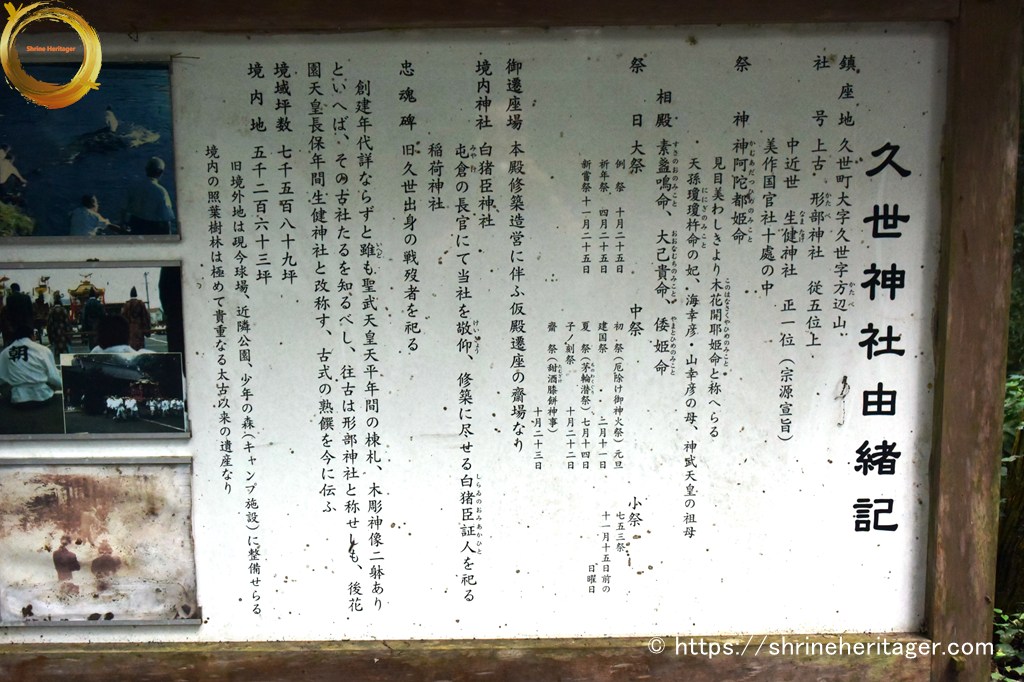 久世神社由緒記
鎮座地 久世町大字久世字方辺山
社号 上古 形部神社 従五位上
中近世 生健神社 正一位(宗源宣旨)
美作国官社十處の中
祭神 神阿陀都姫命
見目美わしきより木花開耶姫命と称へらる
天孫瓊瓊杵命の妃、海幸彦・山幸彦の母、神武天皇の祖母
相殿 素盞鳴命、大己貴命、倭姫命
祭日 大祭 例祭 十月二十五日
祈年祭 四月二十五日
新嘗祭 十一月二十五日
中祭 初祭(厄除け御神火祭)元旦
建国祭 二月十一日
夏祭(茅輪潜祭)、七月十四日
子ノ刻祭 十月二十二日
齋祭(甜酒膝餅神事)
十月二十三日
小祭 七五三祭
十一月十五日前の
日曜日
御遷座場 本殿修築造営に伴ふ仮殿遷座の齋場なり
境内神社 白猪臣神社
屯倉の長官にて当社を敬仰、修築に尽せる白猪臣証人を祀る
稲荷神社
忠魂碑 旧久世出身の戦歿者を祀る
創建年代詳ならずと雖も聖武天皇天平年間の棟札、木彫神像二躰あり
といへば、その古社たるを知るべし、往古は形部神社と称せしも、後花
園天皇長保年間生健神社と改称す、古式の熟饌を今に伝ふ
境域坪数 七千五百八十九坪
境内地 五千二百六十三坪
旧境外地は現今球場、近隣公園、少年の森(キャンプ施設)に整備せらる
境内の照葉樹林は極めて貴重なる太古以来の遺産なり
朝
Shrine Heritager
© https://shrineheritager.com